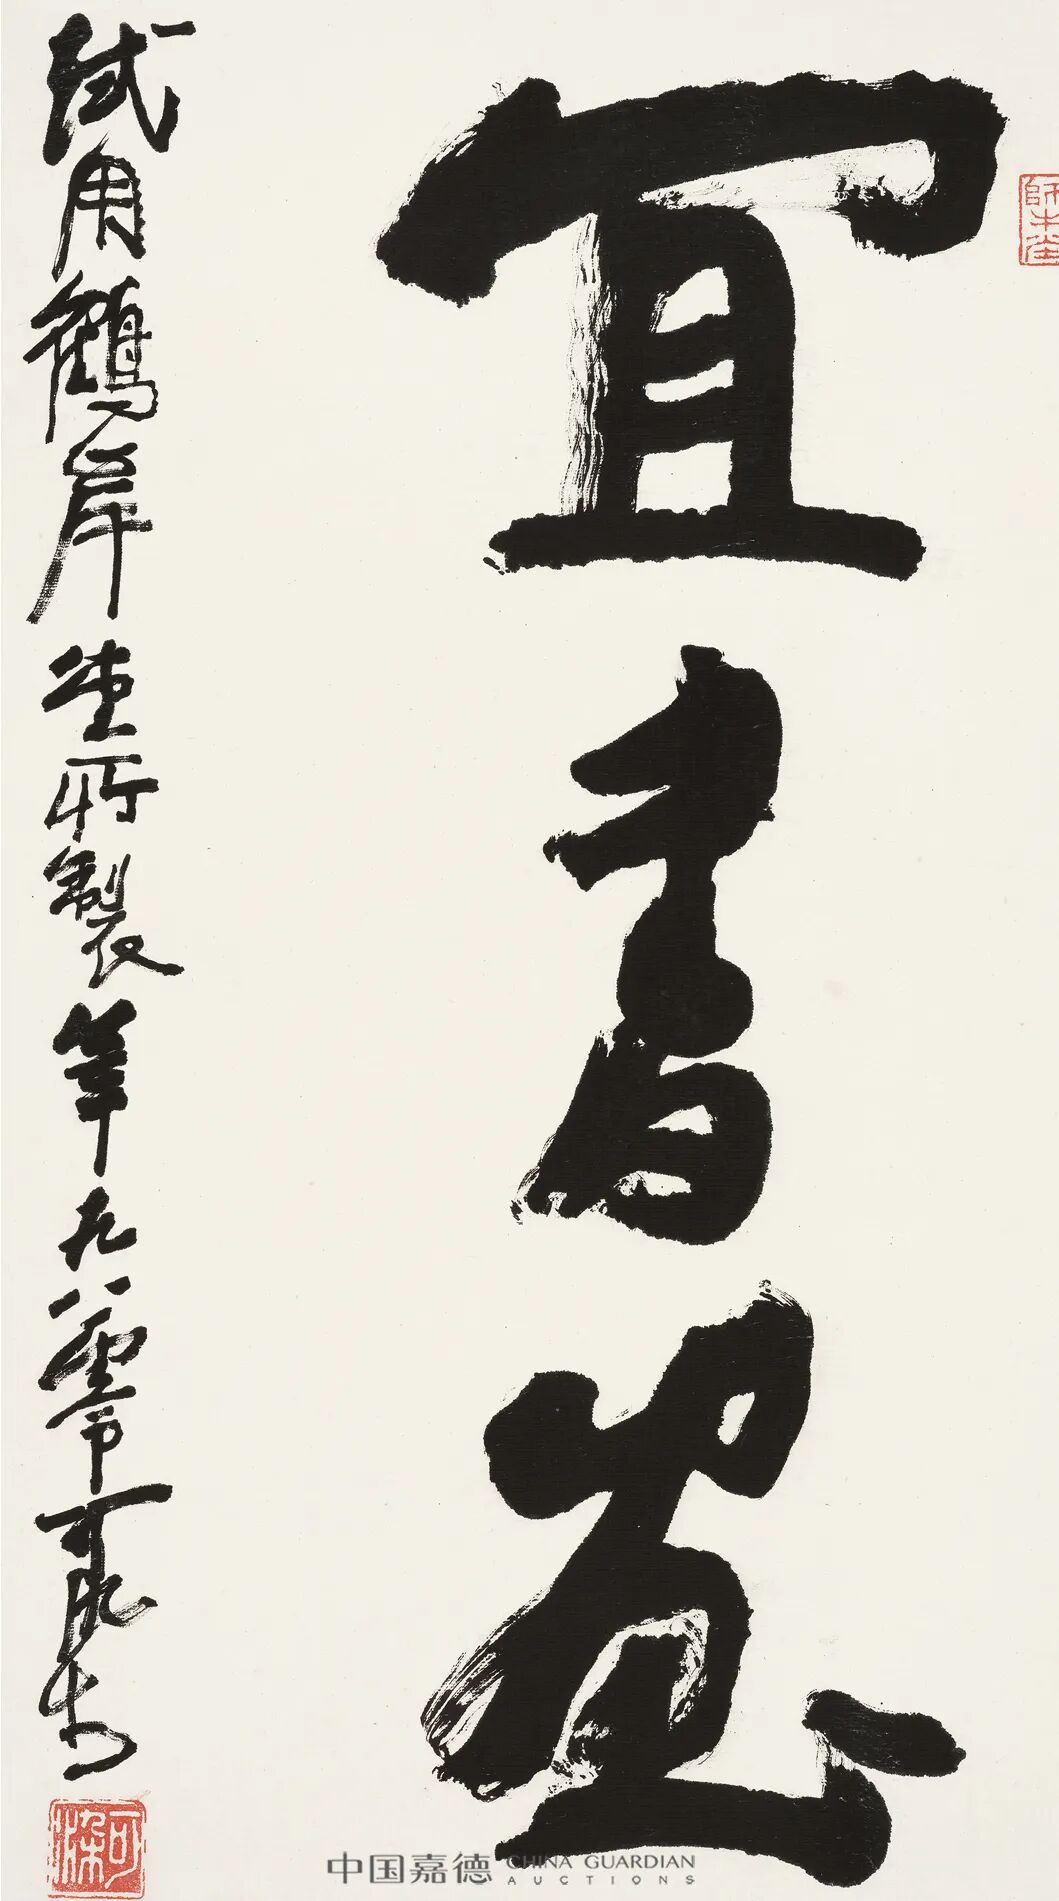 宜書畫
試用鶴岸堂所製筆 九八 可染書
師牛堂
可染
中国嘉德 CHINA GUARDIAN
AUCTIONS